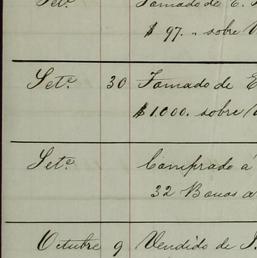 Set.ᵉ Tomado de E.
$ 97. „ sobre
Set.ᵉ 30 Tomado de E
$ 1.000. sobre
Set.ᵉ Comprado á
32 Bonos a
Octubre 9 Vendido de J.